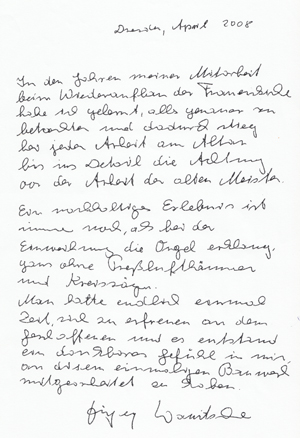 Dresden, April 2008
In den Jahren meiner Mitarbeit
beim Wiederaufbau der Frauenkirche
habe ich gelernt, alles genauer zu
betrachten und dadurch stieg
bei jeder Arbeit am Altar
bis ins Detail die Achtung
vor der Arbeit der alten Meister.
Ein nachhaltiges Erlebnis ist
immer noch, als bei der
Einweihung die Orgel erklang,
ganz ohne Preßlufthämmer
und Kreissägen.
Man hatte endlich einmal
Zeit, sich zu erfreuen an dem
geschaffenen und es entstand
ein dankbares Gefühl in mir,
an diesem einmaligen Bauwerk
mitgearbeitet zu haben.